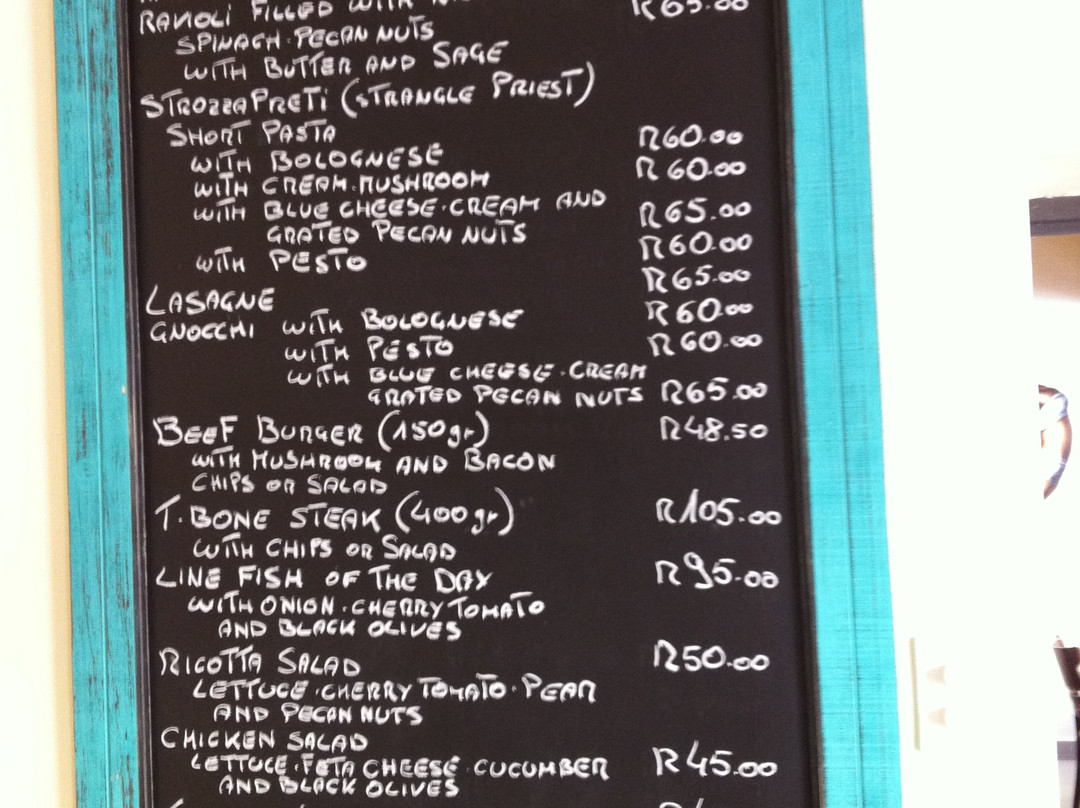 RAVIOLI FILLED WITH R65.00
SPINACH·PECAN NUTS
WITH BUTTER AND SAGE
STROZZAPRETI (STRANGLE PRIEST)
SHORT PASTA
WITH BOLOGNESE R60.00
WITH CREAM·MUSHROOM R60.00
WITH BLUE CHEESE·CREAM AND
GRATED PECAN NUTS R65.00
WITH PESTO R60.00
LASAGNE R65.00
GNOCCHI WITH BOLOGNESE R60.00
WITH PESTO R60.00
WITH BLUE CHEESE·CREAM
GRATED PECAN NUTS R65.00
BEEF BURGER (150gr) R48.50
WITH MUSHROOM AND BACON
CHIPS OR SALAD
T.BONE STEAK (400gr) R105.00
WITH CHIPS OR SALAD
LINE FISH OF THE DAY R95.00
WITH ONION·CHERRY TOMATO
AND BLACK OLIVES
RICOTTA SALAD R50.00
LETTUCE·CHERRY TOMATO·PEAR
AND PECAN NUTS
CHICKEN SALAD
LETTUCE·FETA CHEESE·CUCUMBER R45.00
AND BLACK OLIVES